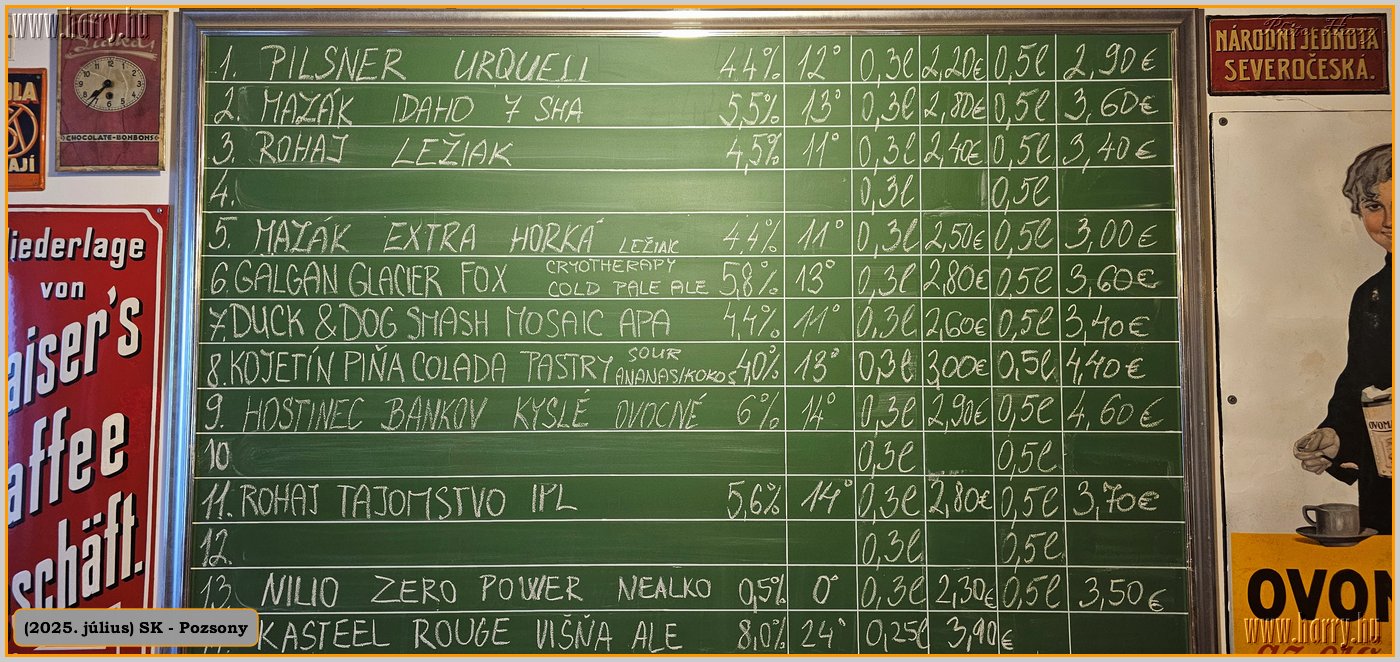 www.harry.hu
CHOCOLATE-BONBONS
NÁRODNÍ JEDNOTA
SEVEROČESKÁ.
1. PILSNER URQUELL 4.4% 12° 0,3l 2,20€ 0,5l 2,90€
2. MAZÁK IDAHO 7 SHA 5,5% 13° 0,3l 2,80€ 0,5l 3,60€
3. ROHAJ LEŽIAK 4,5% 11° 0,3l 2,40€ 0,5l 3,40€
4. 0,3l 0,5l
5. MAZÁK EXTRA HORKÁ LEŽIAK 4.4% 11° 0,3l 2,50€ 0,5l 3,00€
6. GALGAN GLACIER FOX CRYOTHERAPY COLD PALE ALE 5,8% 13° 0,3l 2,80€ 0,5l 3,60€
7. DUCK & DOG SMASH MOSAIC APA 4,4% 11° 0,3l 2,60€ 0,5l 3,40€
8. KOJETÍN PIÑA COLADA PASTRY SOUR ANANAS/KOKOS 4,0% 13° 0,3l 3,00€ 0,5l 4,40€
9. HOSTINEC BANKOV KYSLÉ OVOCNÉ 6% 14° 0,3l 2,90€ 0,5l 4,60€
10 0,3l 0,5l
11. ROHAJ TAJOMSTVO IPL 5,6% 14° 0,3l 2,80€ 0,5l 3,70€
12. 0,3l 0,5l
13. NILIO ZERO POWER NEALKO 0,5% 0° 0,3l 2,30€ 0,5l 3,50€
KASTEEL ROUGE VIŠŇA ALE 8,0% 24° 0,25l 3,90€
iederlage
von
aiser's
affee
schäft.
OVOM
OVON
(2025. július) SK - Pozsony
www.harry.hu